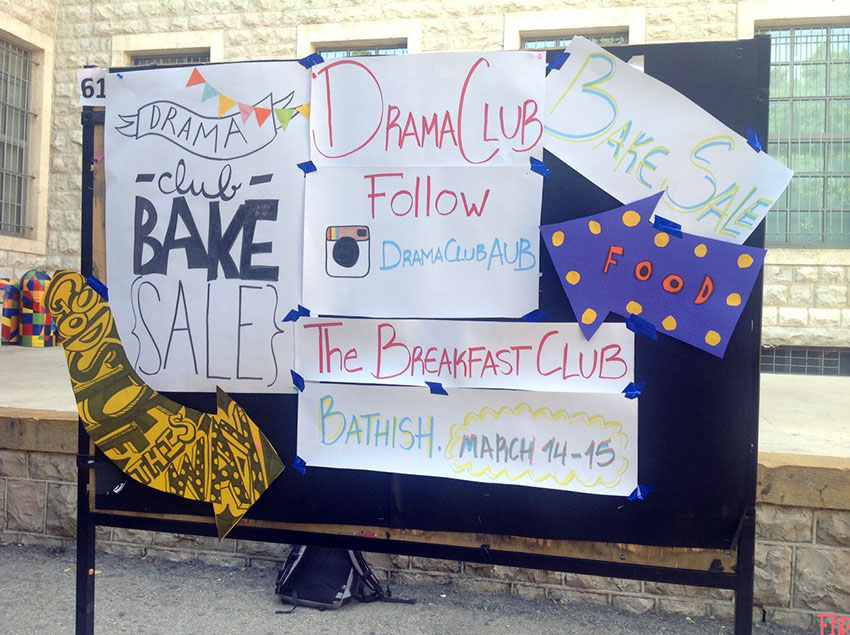 61
DRAMA
-club-
BAKE
{SALE}
DRAMA CLUB
FOLLOW
DRAMACLUBAUB
BAKE SALE
FOOD
THE BREAKFAST CLUB
BATHISH. MARCH 14-15
GOODS
THIS
WAY